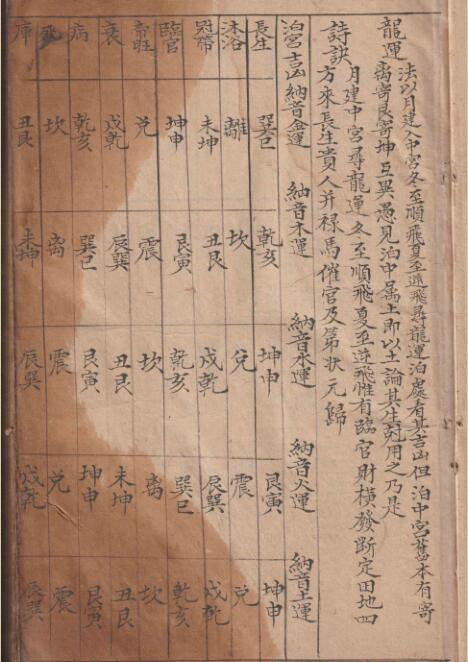 龍運
法以月建入中宮冬至順飛夏至逆飛尋龍運泊處看其吉凶但泊中宮舊本有寄
离寄艮寄坤互異愚見泊中屬土即以土論其生尅用之乃是
詩訣
月建中宮尋龍運冬至順飛夏至逆飛惟有臨官財橫發斷定田地四
方來長生貴人并禄馬催官及第狀元歸
泊宮吉凶 納音金運 納音木運 納音水運 納音火運 納音土運
長生 巽巳 乾亥 坤申 艮寅 坤申
沐浴 離 坎 兌 震 兌
冠帶 未坤 丑艮 戌乾 辰巽 戌乾
臨官 坤申 艮寅 乾亥 巽巳 乾亥
帝旺 兌 震 坎 离 坎
衰 戌乾 辰巽 丑艮 未坤 丑艮
病 乾亥 巽巳 艮寅 坤申 艮寅
死 坎 离 震 兌 震
庫 丑艮 未坤 辰巽 戌乾 辰巽